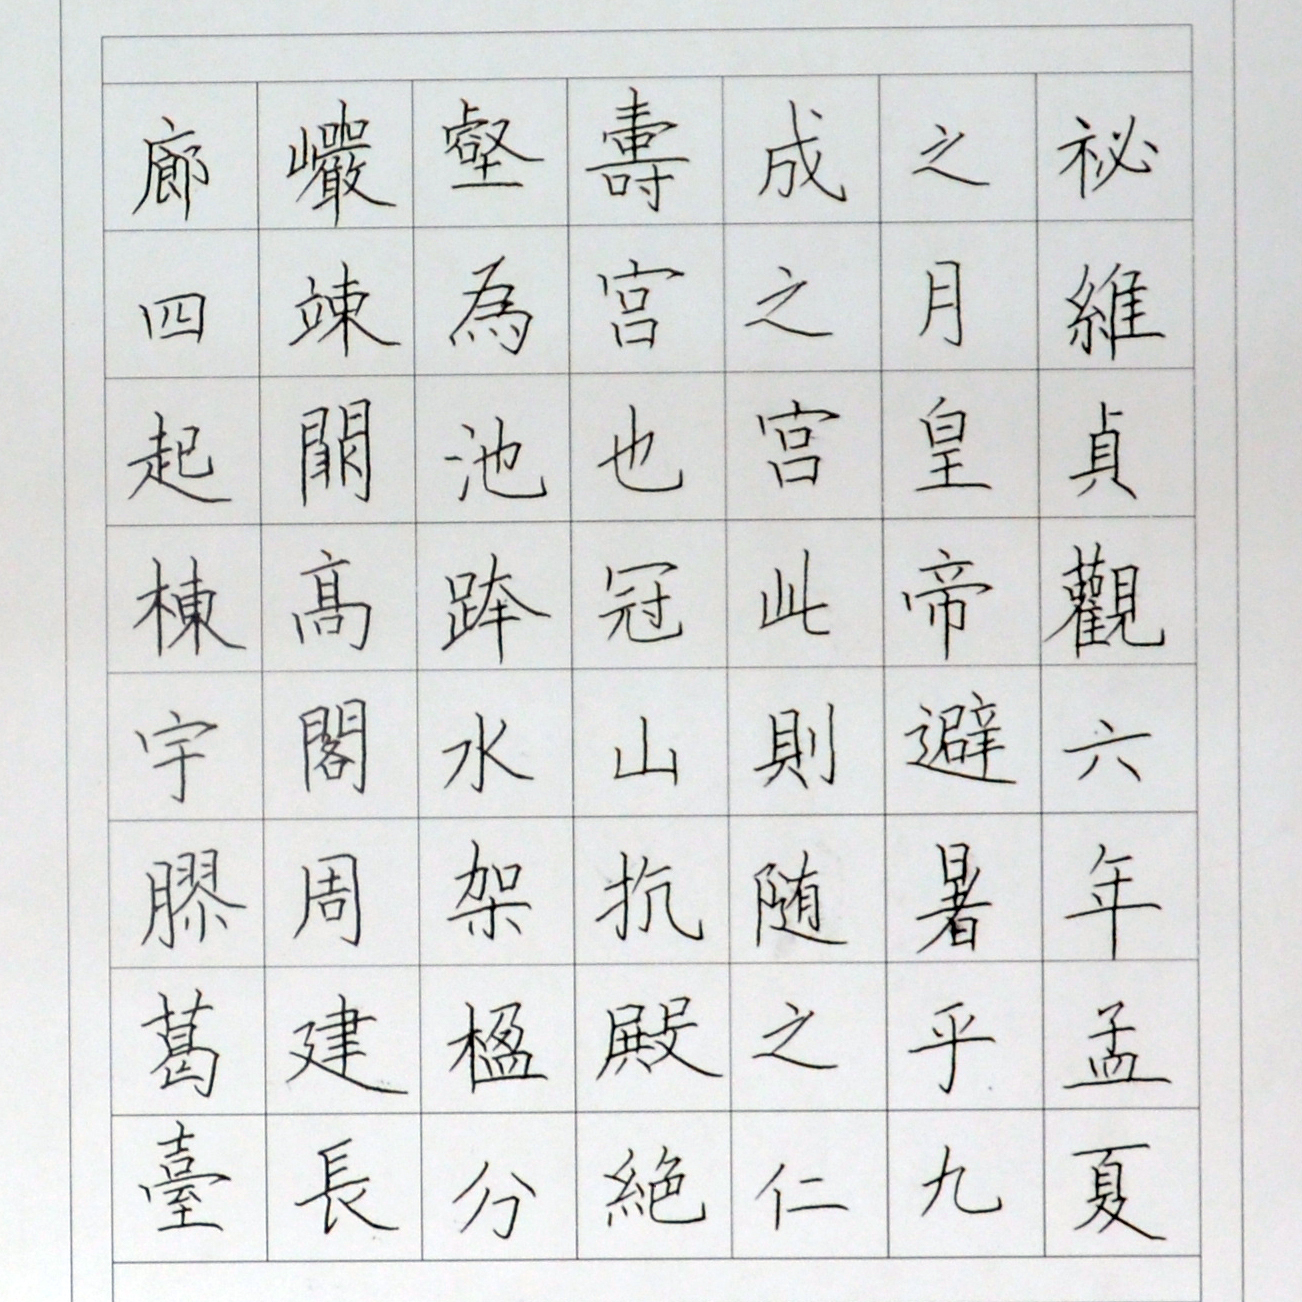 祕維貞觀六年孟夏
之月皇帝避暑乎九
成之宫此則随之仁
壽宫也冠山抗殿絶
壑為池跨水架楹分
巖竦闕高閣周建長
廊四起棟宇膠葛臺